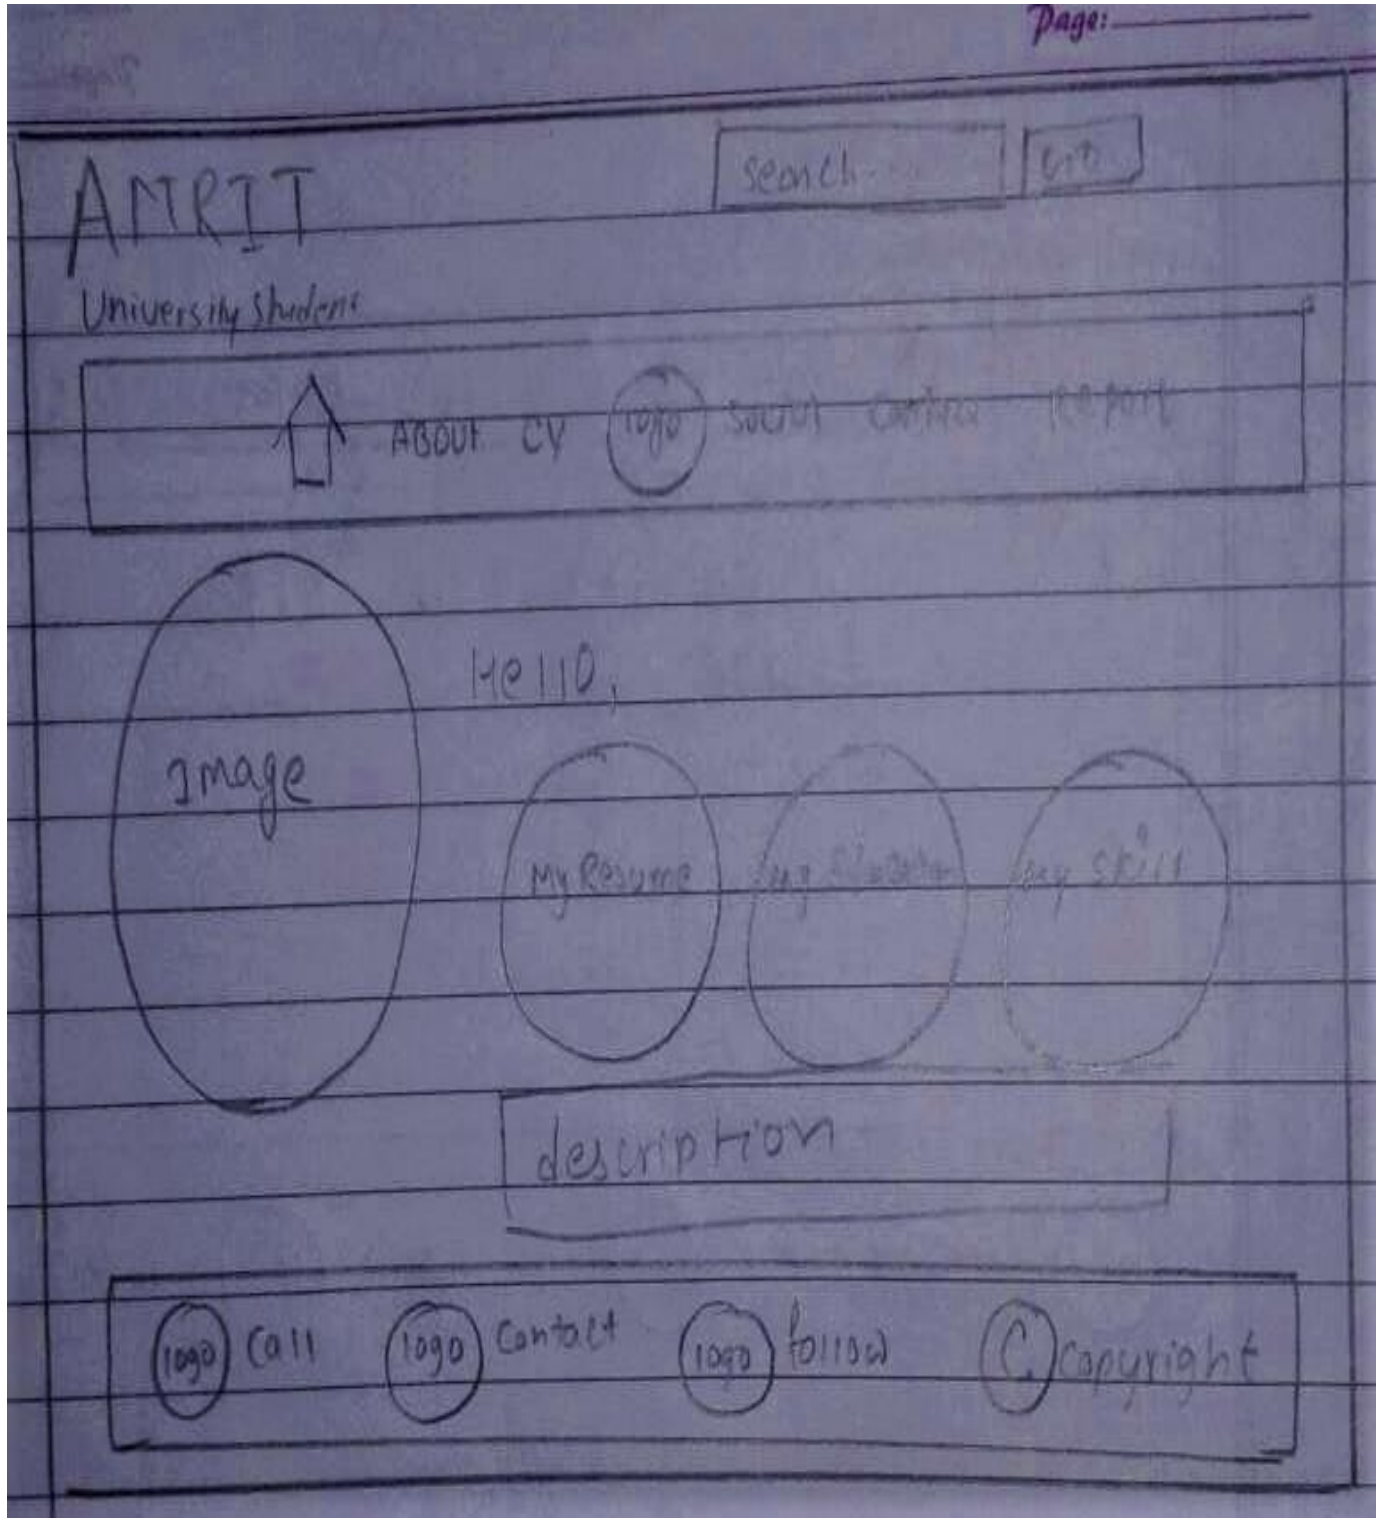 Page:
AMRIT
search...
University Student
ABOUT CV logo social contact report
Hello,
Image
My Resume my my skill
description
logo call logo contact logo follow C copyright